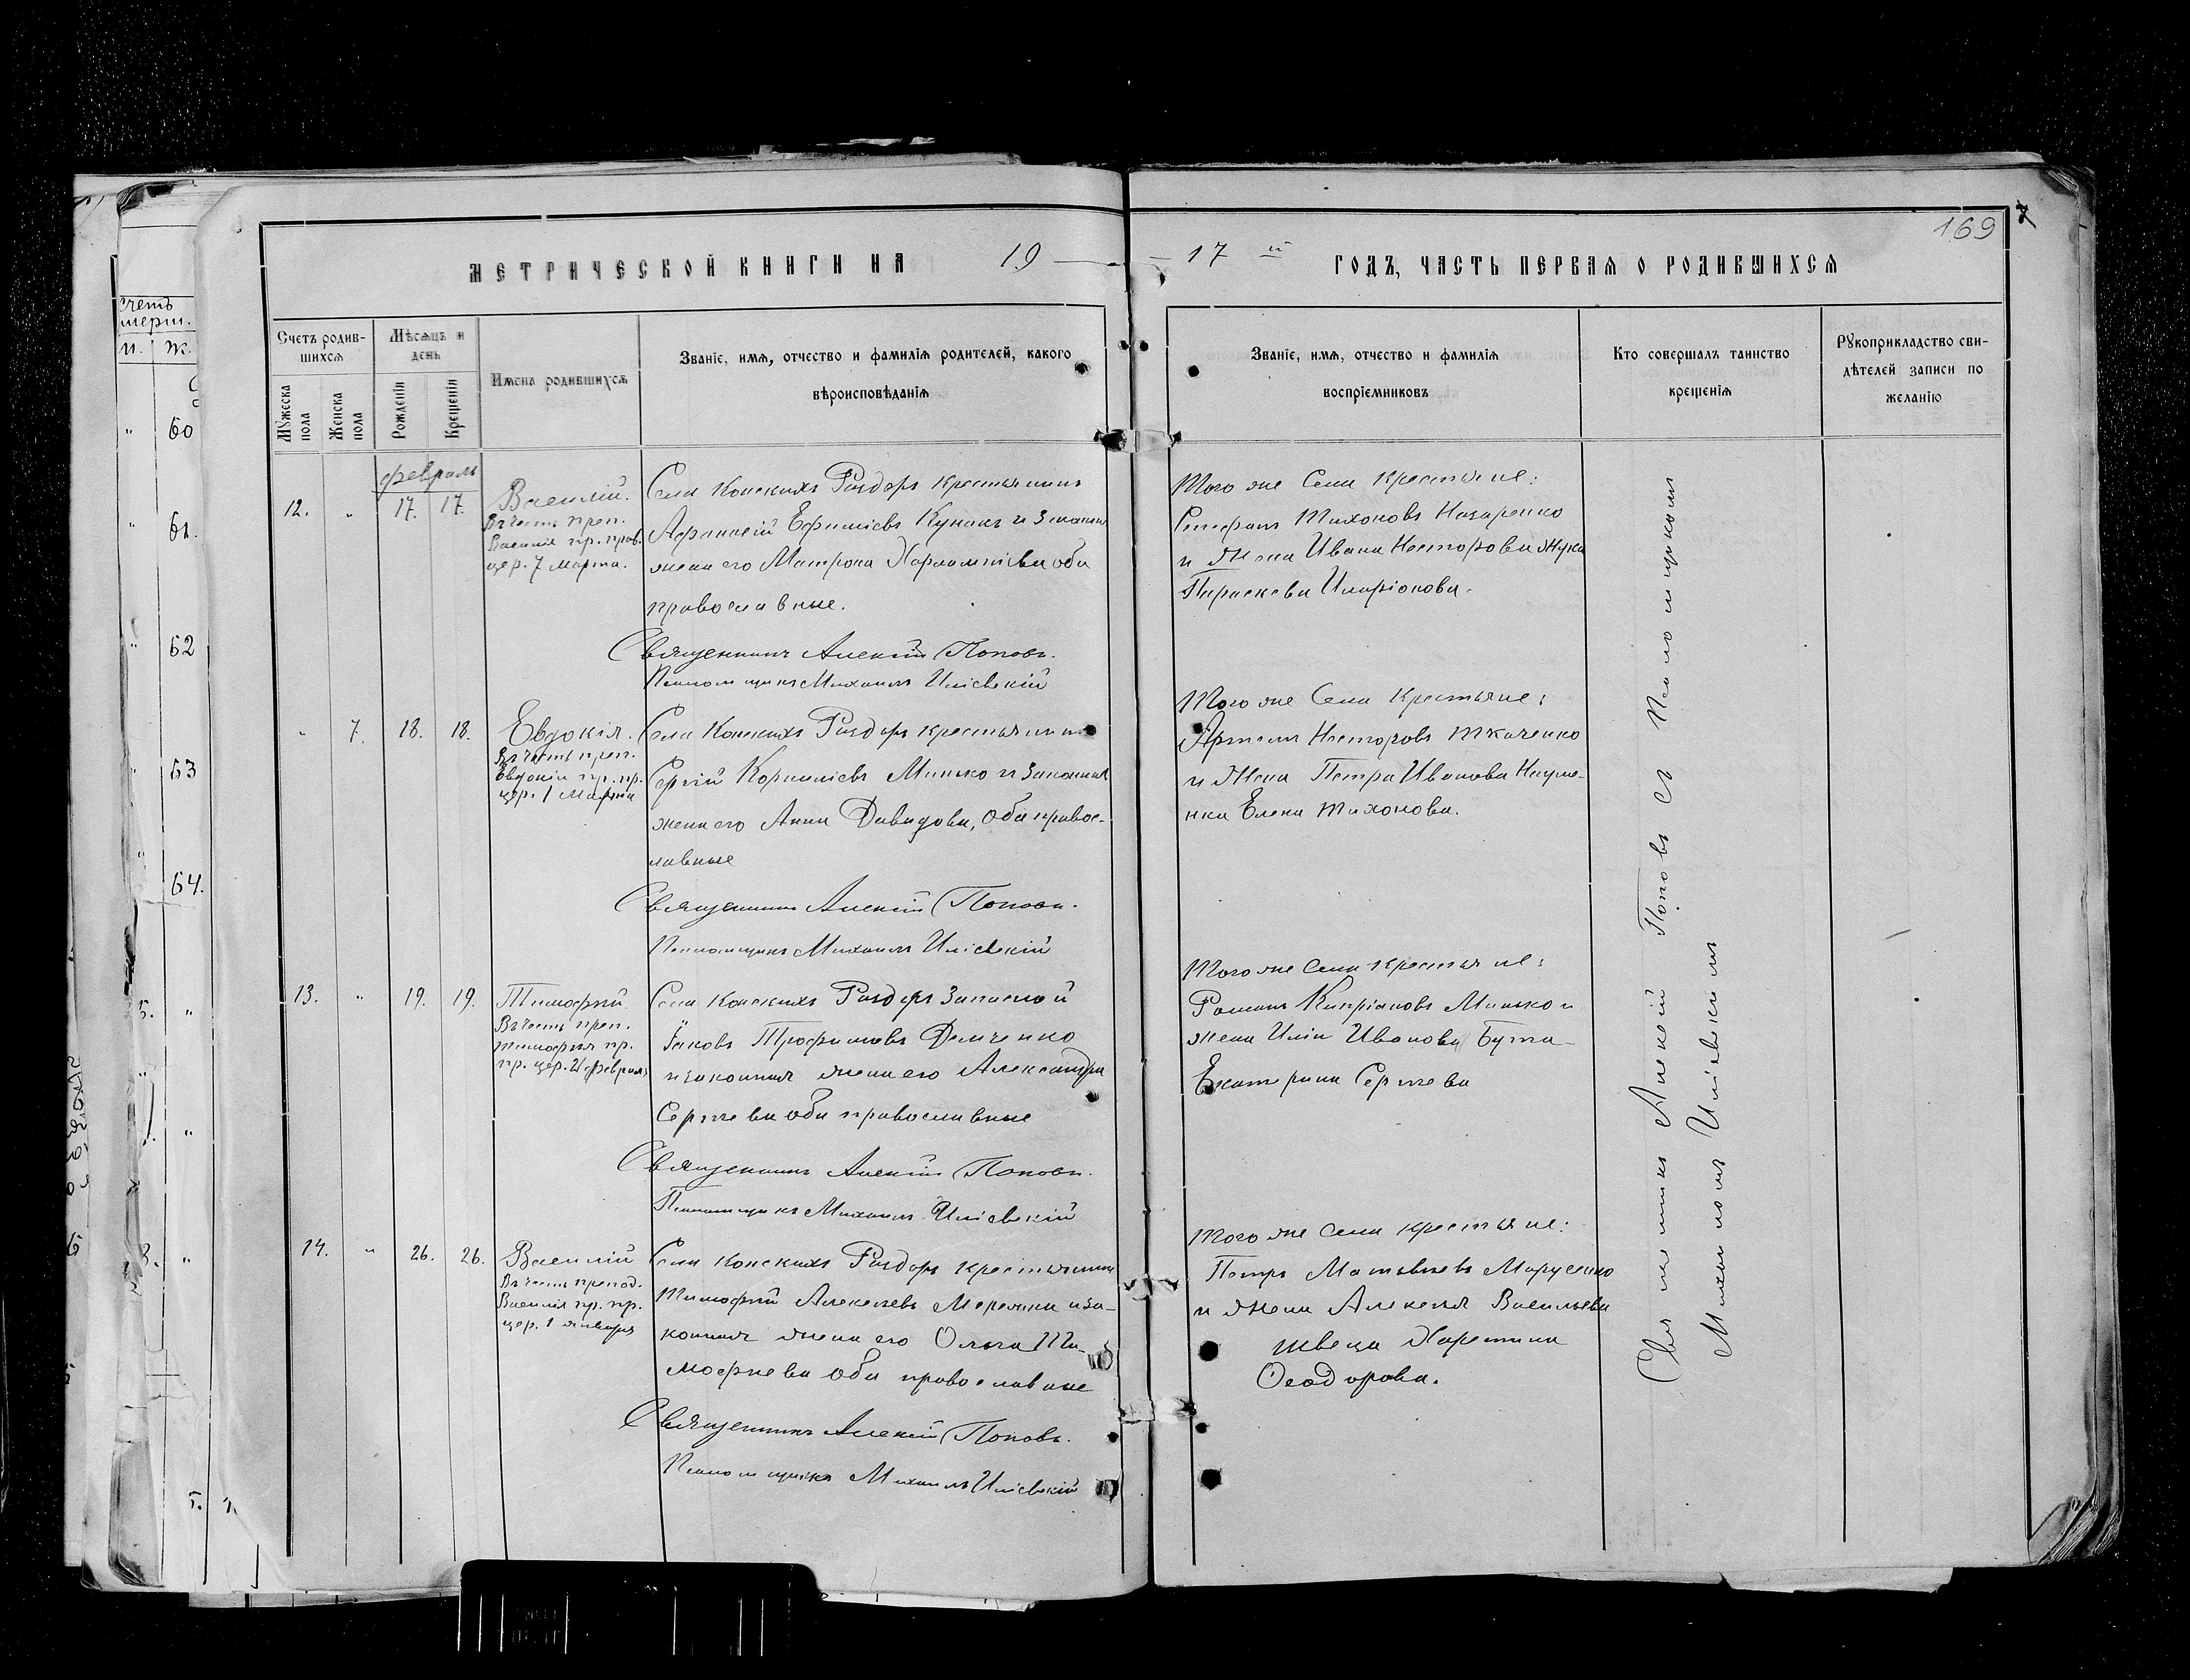 169
МЕТРИЧЕСКОЙ КНИГИ НА 19 — 17 й ГОДЪ, ЧАСТЬ ПЕРВАЯ О РОДИВШИХСЯ
Счетъ родив-
шихся
Мужеска пола
Женска пола
Мѣсяцъ и
день
Рожденія
Крещенія
Имена родившихся
Званіе, имя, отчество и фамилія родителей, какого
вѣроисповѣданія
Званіе, имя, отчество и фамилія
воспріемниковъ
Кто совершалъ таинство
крещенія
Рукоприкладство сви-
дѣтелей записи по
желанію
счетъ
умерш.
м. ж.
60
61.
62
63
64.
февраль
12. " 17. 17.
Василій.
Въ честь преп.
Василія пр. прав.
цер. 7 марта.
Села Конскихъ Раздоръ крестьянинъ
Афанасій Ефиміевъ Кунакъ и законная
жена его Матрона Харлампіева оба
православные.
Священникъ Алексій Поповъ.
Псаломщикъ Михаилъ Иліевскій
Того же Села крестьяне:
Стефанъ Тихоновъ Назаренко
и Жена Ивана Несторова Жука
Параскева Иларіонова.
" 7. 18. 18.
Евдокія.
Въ честь преп.
Евдокіи пр. пр.
цер. 1 Марта
Села Конскихъ Раздоръ крестьянинъ
Сергій Корниліевъ Минько и законная
жена его Анна Давидова, оба правос-
лавные
Священникъ Алексій Поповъ.
Псаломщикъ Михаилъ Иліевскій
Того же Села Крестьяне:
Артемъ Несторовъ Ткаченко
и Жена Петра Иванова Науме-
нка Елена Тихонова.
13. " 19. 19.
Тимофей
Въ честь преп.
Тимофея пр.
пр. цер. 21 февраля
Села Конскихъ Раздоръ Запасной
Іаковъ Трофимовъ Демченко
и законная жена его Александра
Сергіева оба православные
Священникъ Алексій Поповъ.
Псаломщикъ Михаилъ Иліевскій
Того же Села крестьяне:
Романъ Кипріановъ Минько и
жена Иліи Иванова Бута
Екатерина Сергіева
14. " 26. 26.
Василій
Въ честь препод.
Василія пр. пр.
цер. 1 января
Села Конскихъ Раздоръ крестьянинъ
Тимофей Алексіевъ Мережка и за-
конная жена его Ольга Ти-
мофеева оба православные
Священникъ Алексій Поповъ.
Псаломщикъ Михаилъ Иліевскій
Того же Села крестьяне:
Петръ Матвіевъ Марусенко
и жена Алексія Васильева
Швеца Харетина
Ѳеодорова.
Священникъ Алексій Поповъ съ Псаломщикомъ
Михаиломъ Иліевскимъ